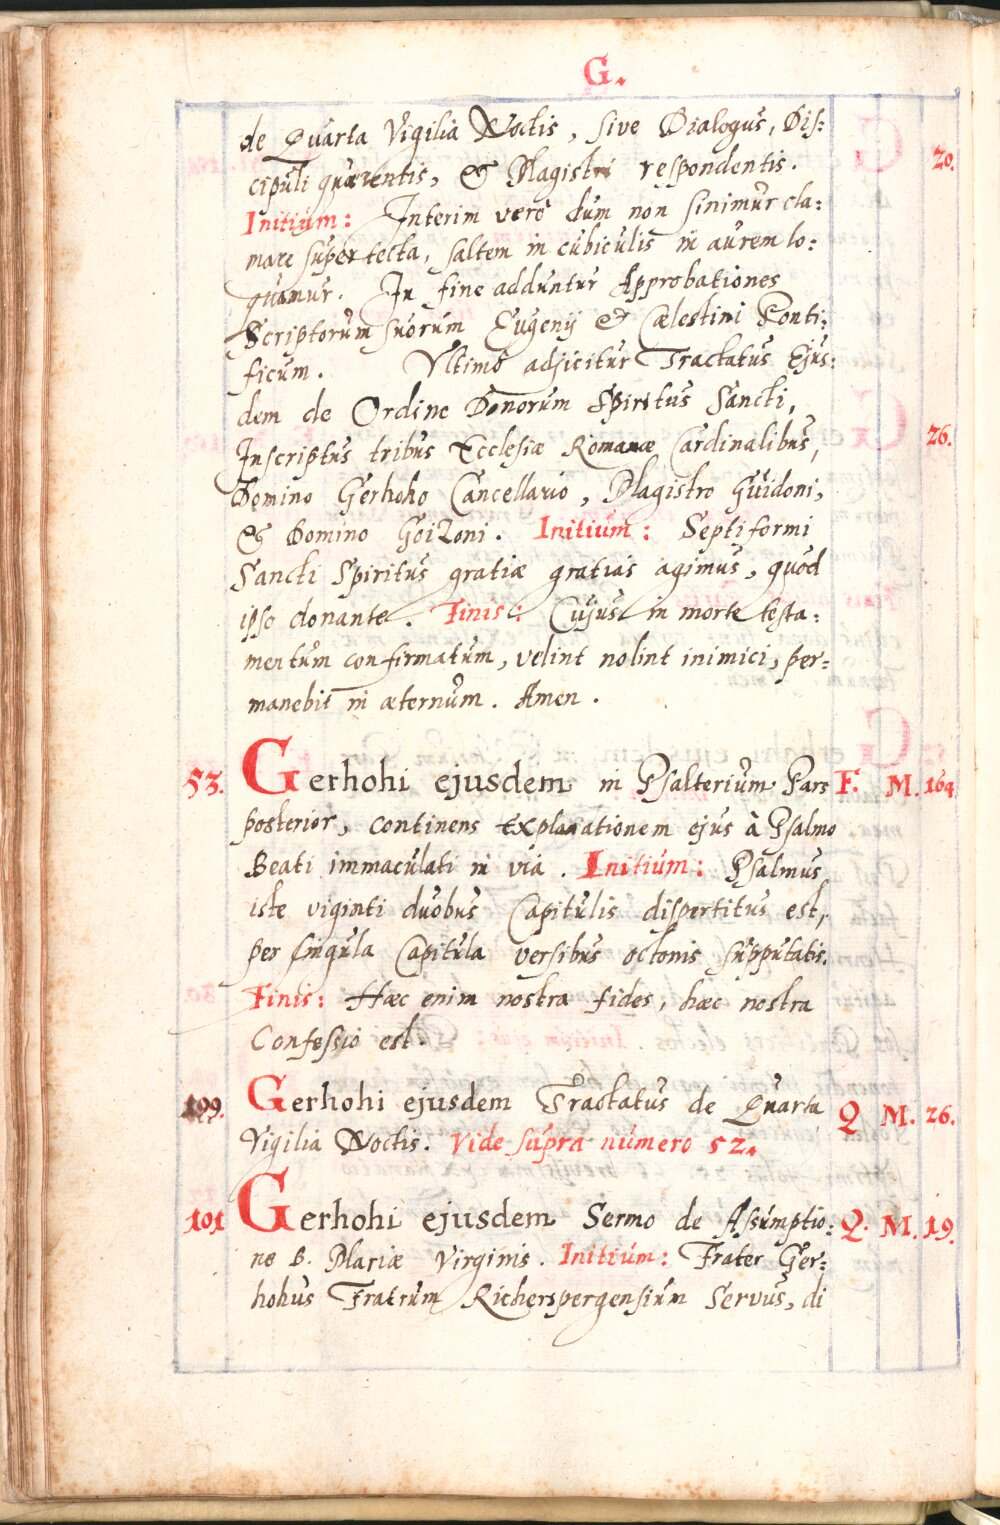 G.
de Quarta Vigilia Noctis, sive Dialogus, Dis:
cipuli quærentis, & Magistri respondentis. 20.
Initium: Interim verò dum non sinimur cla:
mare super tecta, saltem in cubiculis in aurem lo:
quamur. In fine adduntur Approbationes
Scriptorum suorum Eugenij & Cælestini Ponti:
ficum. Ultimò adjicitur Tractatus Ejus:
dem de Ordine Donorum Spiritus Sancti,
Inscriptus tribus Ecclesiæ Romanæ Cardinalibus, 26.
Domino Gerhoho Cancellario, Magistro Guidoni,
& Domino Goizoni. Initium: Septiformi
Sancti Spiritus gratiæ gratias agimus, quod
ipso donante. Finis: Cujus in morte testa:
mentum confirmatum, velint nolint inimici, per=
manebit in æternum. Amen.
53. Gerhohi ejusdem in Psalterium Pars F. M. 164
posterior, continens Explanationem ejus à Psalmo
Beati immaculati in via. Initium: Psalmus
iste viginti duobus Capitulis dispertitus est,
per singula Capitula versibus octonis supputatis.
Finis: Hæc enim nostra fides, hæc nostra
Confessio est.
199. Gerhohi ejusdem Tractatus de Quarta Q M. 26.
Vigilia Noctis. Vide supra numero 52.
101 Gerhohi ejusdem Sermo de Assumptio: Q. M. 19.
ne B. Mariæ Virginis. Initium: Frater Ger=
hohus Fratrum Richerspergensium Servus, di